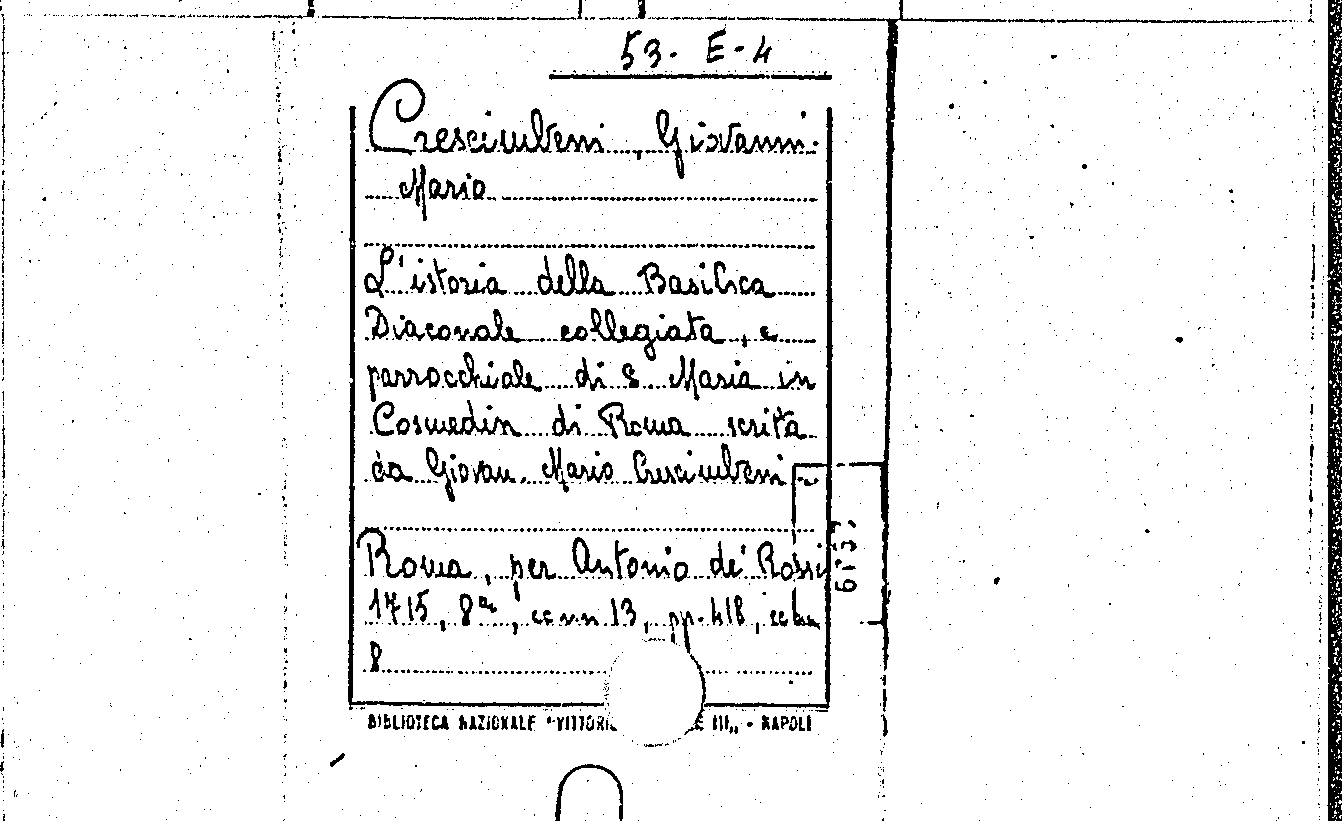 53. E-4
Crescimbeni, Giovanni
Mario
L'istoria della Basilica
Diaconale collegiata, e
parrocchiale di S Maria in
Cosmedin di Roma scritta
da Giovan. Mario Crescimbeni
Roma, per Antonio de' Rossi
1715, 8°, cc nn 13, pp. 418, cc nn
8
BIBLIOTECA NAZIONALE "VITTORIO E III„ - NAPOLI